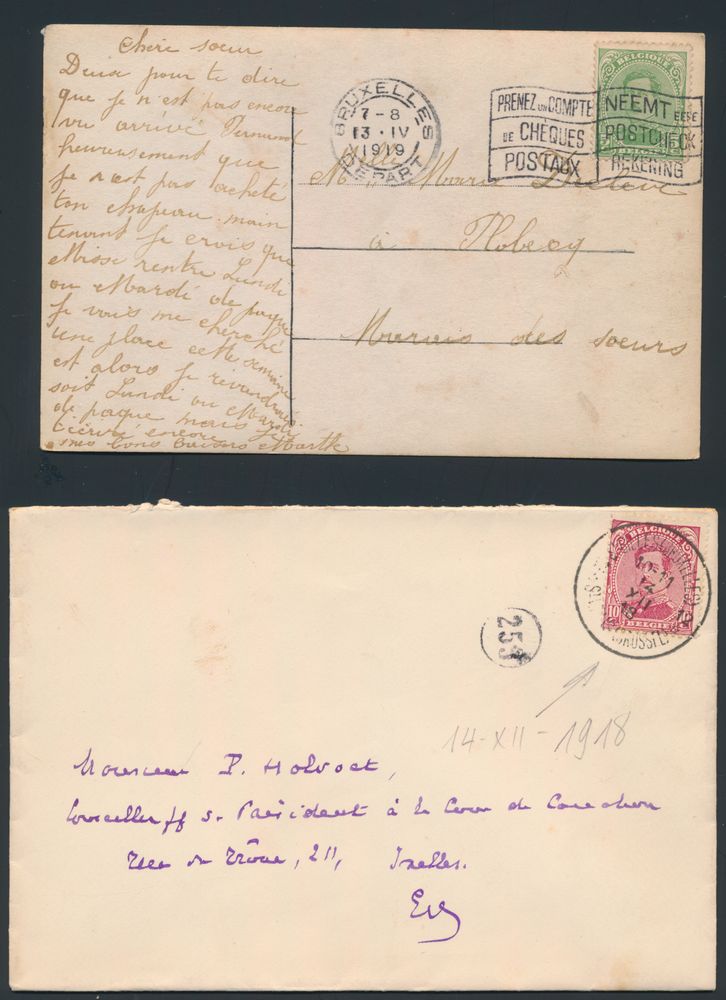 Chère soeur
Deux pour te dire
que je n'est pas encore
vu arrivé Fernand
heureusement que
je n'est pas acheté
ton chapeau. main
tenant je crois que
Misse rentre Lundi
ou Mardi de paque
je vais me cherché
une place cette semaine
est alors je reviendrai
soit Lundi ou Mardi
de paque mais je
t'écriré encore
mes bons baisers Marthe
BRUXELLES
7-8
13 · IV
1919
DEPART
PRENEZ UN COMPTE
DE CHEQUES
POSTAUX
NEEMT EENE
POSTCHECK
REKENING
BELGIQUE
Mlle Marie
à Flobecq
Marais des soeurs
BELGIQUE
10
BELGIË
10-11
XII
18
19
253
14-XII-1918
Monsieur P. Holvoet,
Conseiller ff s. Président à la Cour de
rue du Trône, 211, Ixelles.